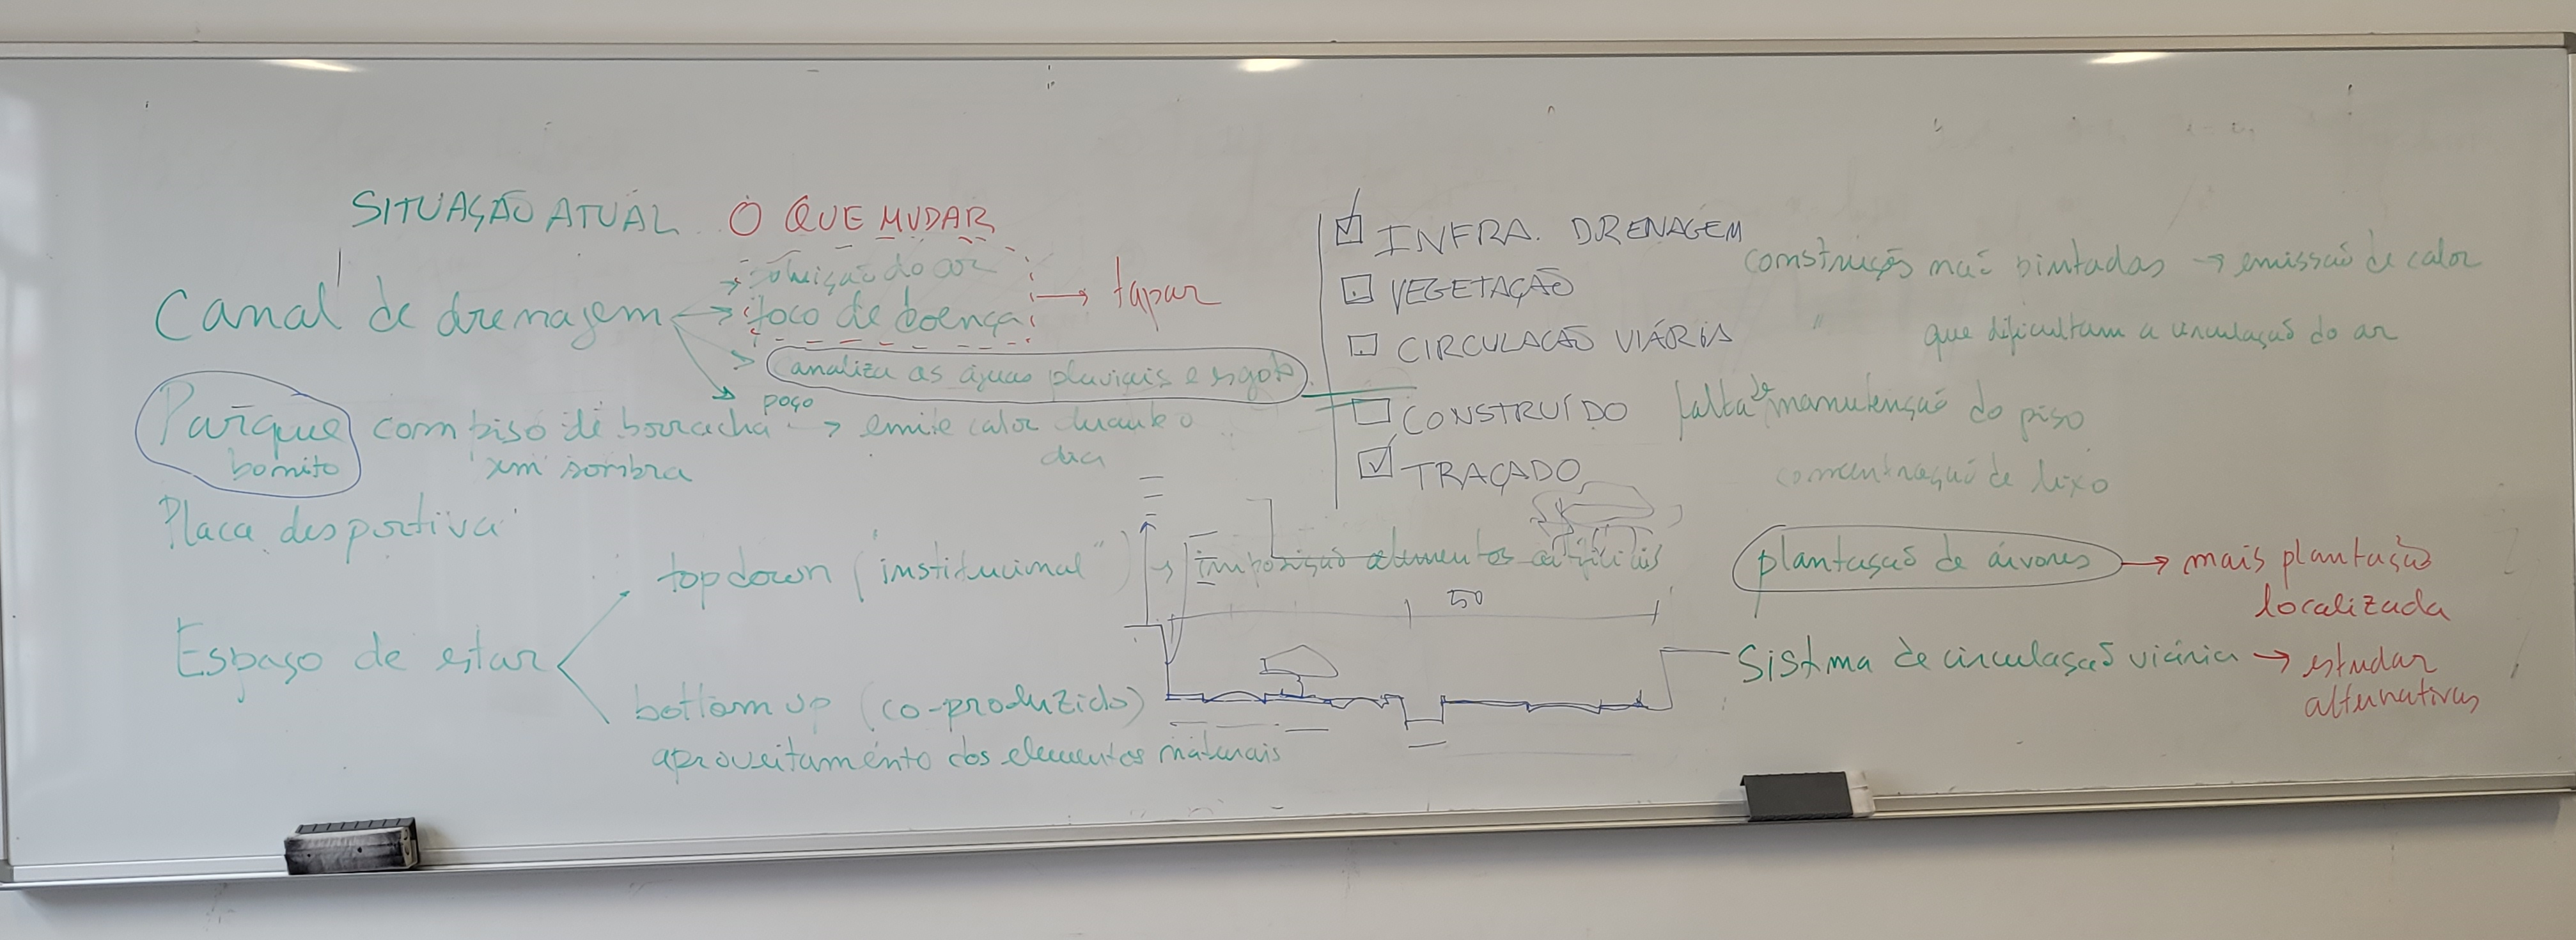 SITUAÇÃO ATUAL O QUE MUDAR
poluição do ar
Canal de drenagem → foco de doença → tapar
canaliza as águas pluviais e esgoto
poço
Parque com piso de borracha → emite calor durante o
bonito sem sombra dia
Placa desportiva
top down ("institucional") → imposição elementos artificiais
Espaço de estar
bottom up (co-produzido)
aproveitamento dos elementos naturais
50
INFRA. DRENAGEM
VEGETAÇÃO
CIRCULAÇÃO VIÁRIA
CONSTRUÍDO
TRAÇADO
construções não pintadas → emissão de calor
" que dificultam a circulação do ar
falta de manutenção do piso
concentração de lixo
plantação de árvores → mais plantação
localizada
Sistma de circulação viária → estudar
alternativas